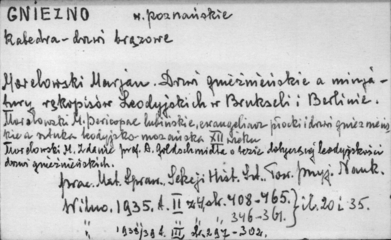 GNIEZNO w. poznańskie
Katedra - drzwi brązowe
Morelowski Marjan. Drzwi gnieźnieńskie a minja-
tury rękopisów leodyjskich w Brukseli i Berlinie.
Morelowski M. Pericopae lubińskie, ewangeliarz płocki i drzwi gnieźnieńs-
kie a sztuka leodyjsko-mozańska XII wieku
Morelowski M. Zdanie prof. A. Goldschmidta o tezie dotyczącej leodyjskości
drzwi gnieźnieńskich.
prac. Mat. Spraw. Sekcji Hist. Szt. Tow. Przyj. Nauk.
Wilno. 1935. t. II z. 4 str. 408-465. } il. 20 i 35.
" " 346-361.
" 1938/39 t. III str. 297-302.